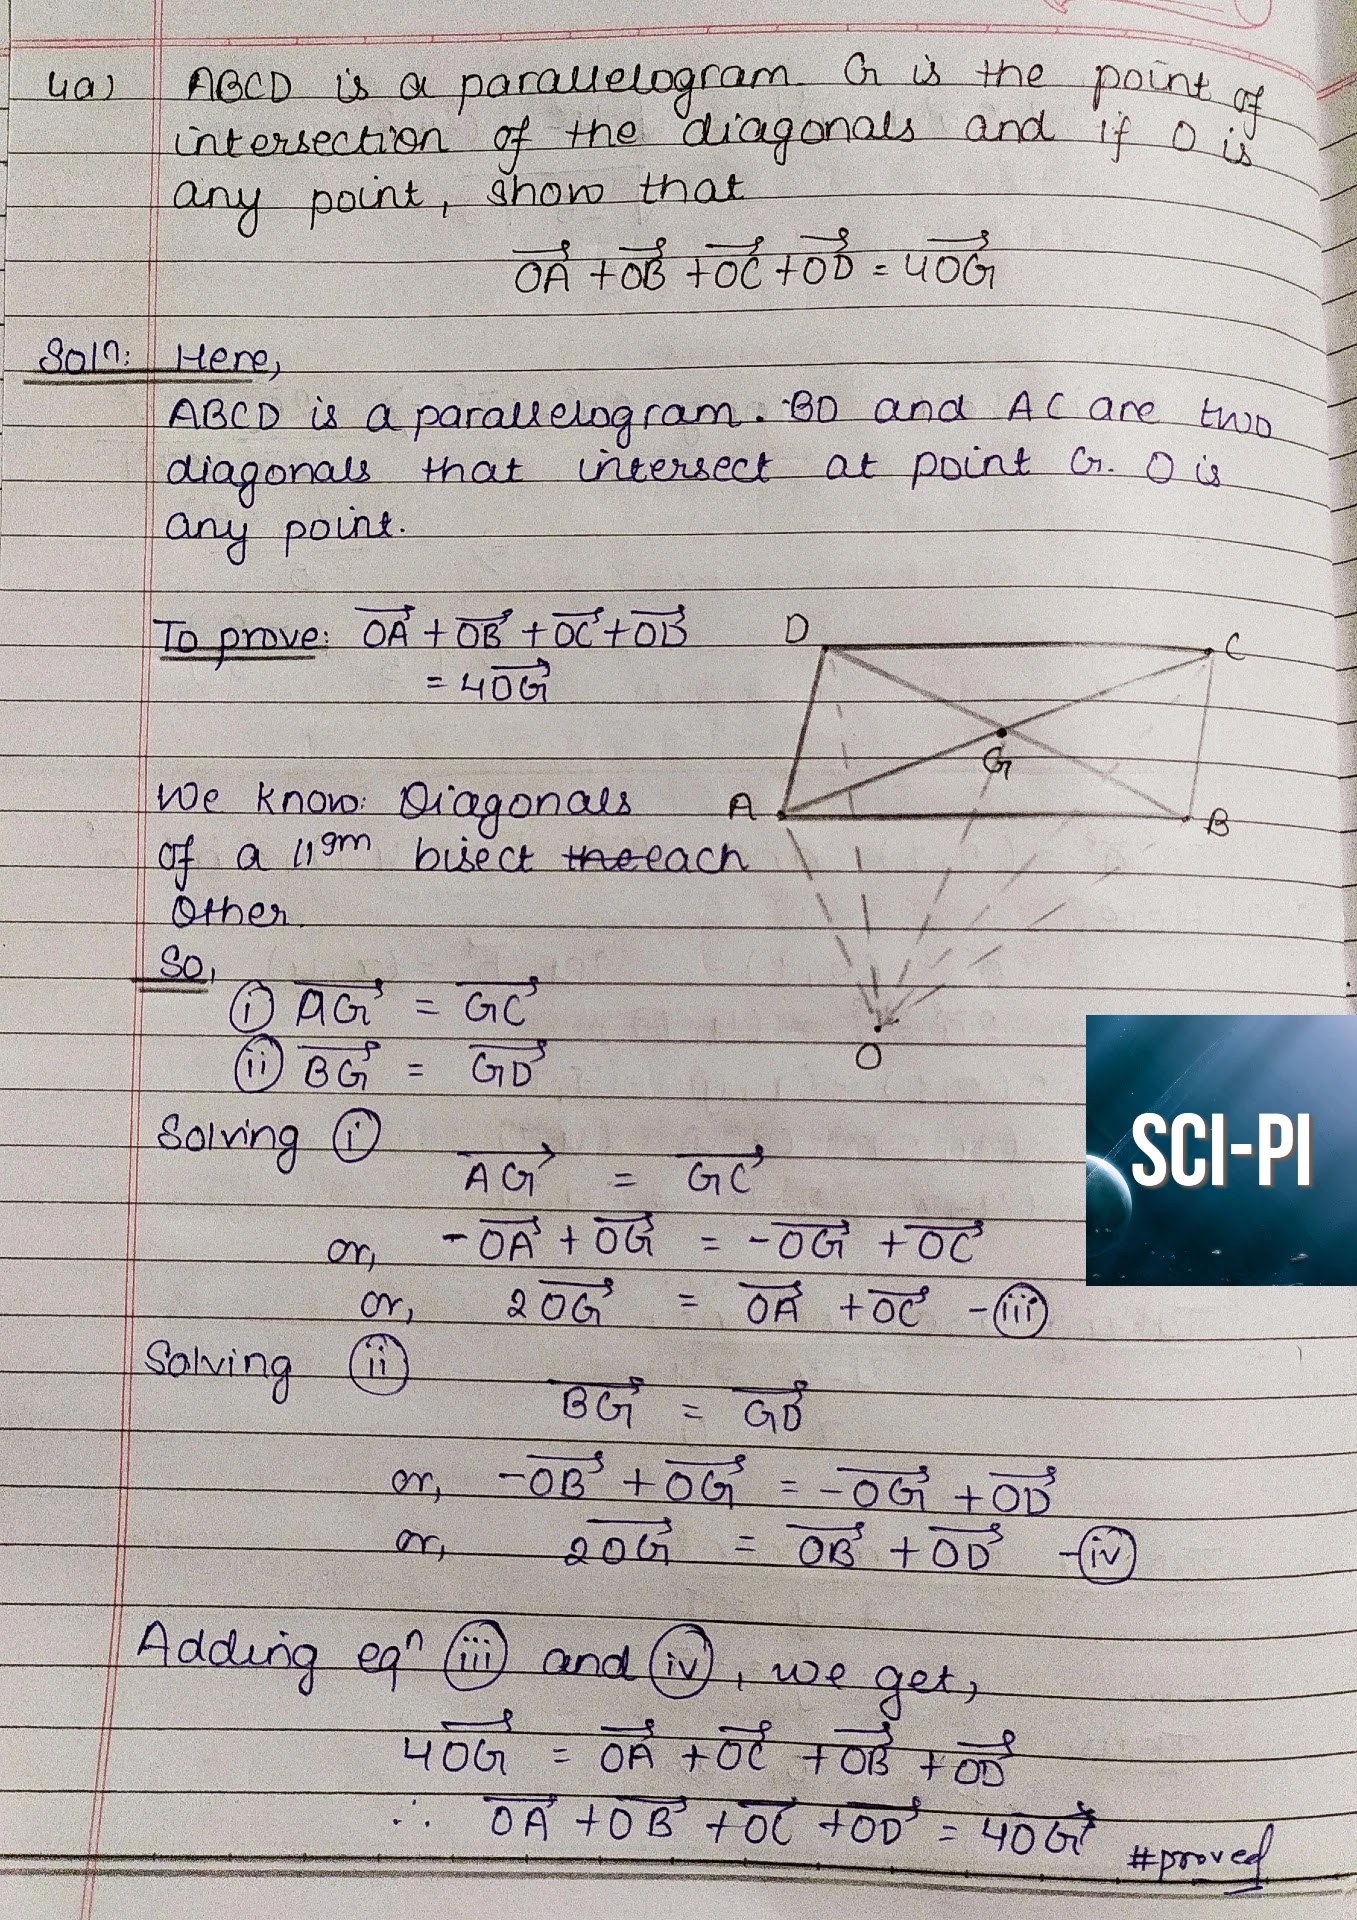 4a) ABCD is a parallelogram. G is the point of
intersection of the diagonals and if O is
any point, show that
$\overrightarrow{OA} + \overrightarrow{OB} + \overrightarrow{OC} + \overrightarrow{OD} = 4\overrightarrow{OG}$
Solⁿ: Here,
ABCD is a parallelogram. BD and AC are two
diagonals that intersect at point G. O is
any point.
To prove: $\overrightarrow{OA} + \overrightarrow{OB} + \overrightarrow{OC} + \overrightarrow{OD}$
$= 4\overrightarrow{OG}$
D
C
G
A
B
O
We know: Diagonals
of a ||gm bisect ~~the~~ each
other.
So,
(i) $\overrightarrow{AG} = \overrightarrow{GC}$
(ii) $\overrightarrow{BG} = \overrightarrow{GD}$
SCI-PI
Solving (i)
$\overrightarrow{AG} = \overrightarrow{GC}$
or, $-\overrightarrow{OA} + \overrightarrow{OG} = -\overrightarrow{OG} + \overrightarrow{OC}$
or, $2\overrightarrow{OG} = \overrightarrow{OA} + \overrightarrow{OC}$ - (iii)
Solving (ii)
$\overrightarrow{BG} = \overrightarrow{GD}$
or, $-\overrightarrow{OB} + \overrightarrow{OG} = -\overrightarrow{OG} + \overrightarrow{OD}$
or, $2\overrightarrow{OG} = \overrightarrow{OB} + \overrightarrow{OD}$ - (iv)
Adding eqⁿ (iii) and (iv), we get,
$4\overrightarrow{OG} = \overrightarrow{OA} + \overrightarrow{OC} + \overrightarrow{OB} + \overrightarrow{OD}$
∴ $\overrightarrow{OA} + \overrightarrow{OB} + \overrightarrow{OC} + \overrightarrow{OD} = 4\overrightarrow{OG}$ #proved